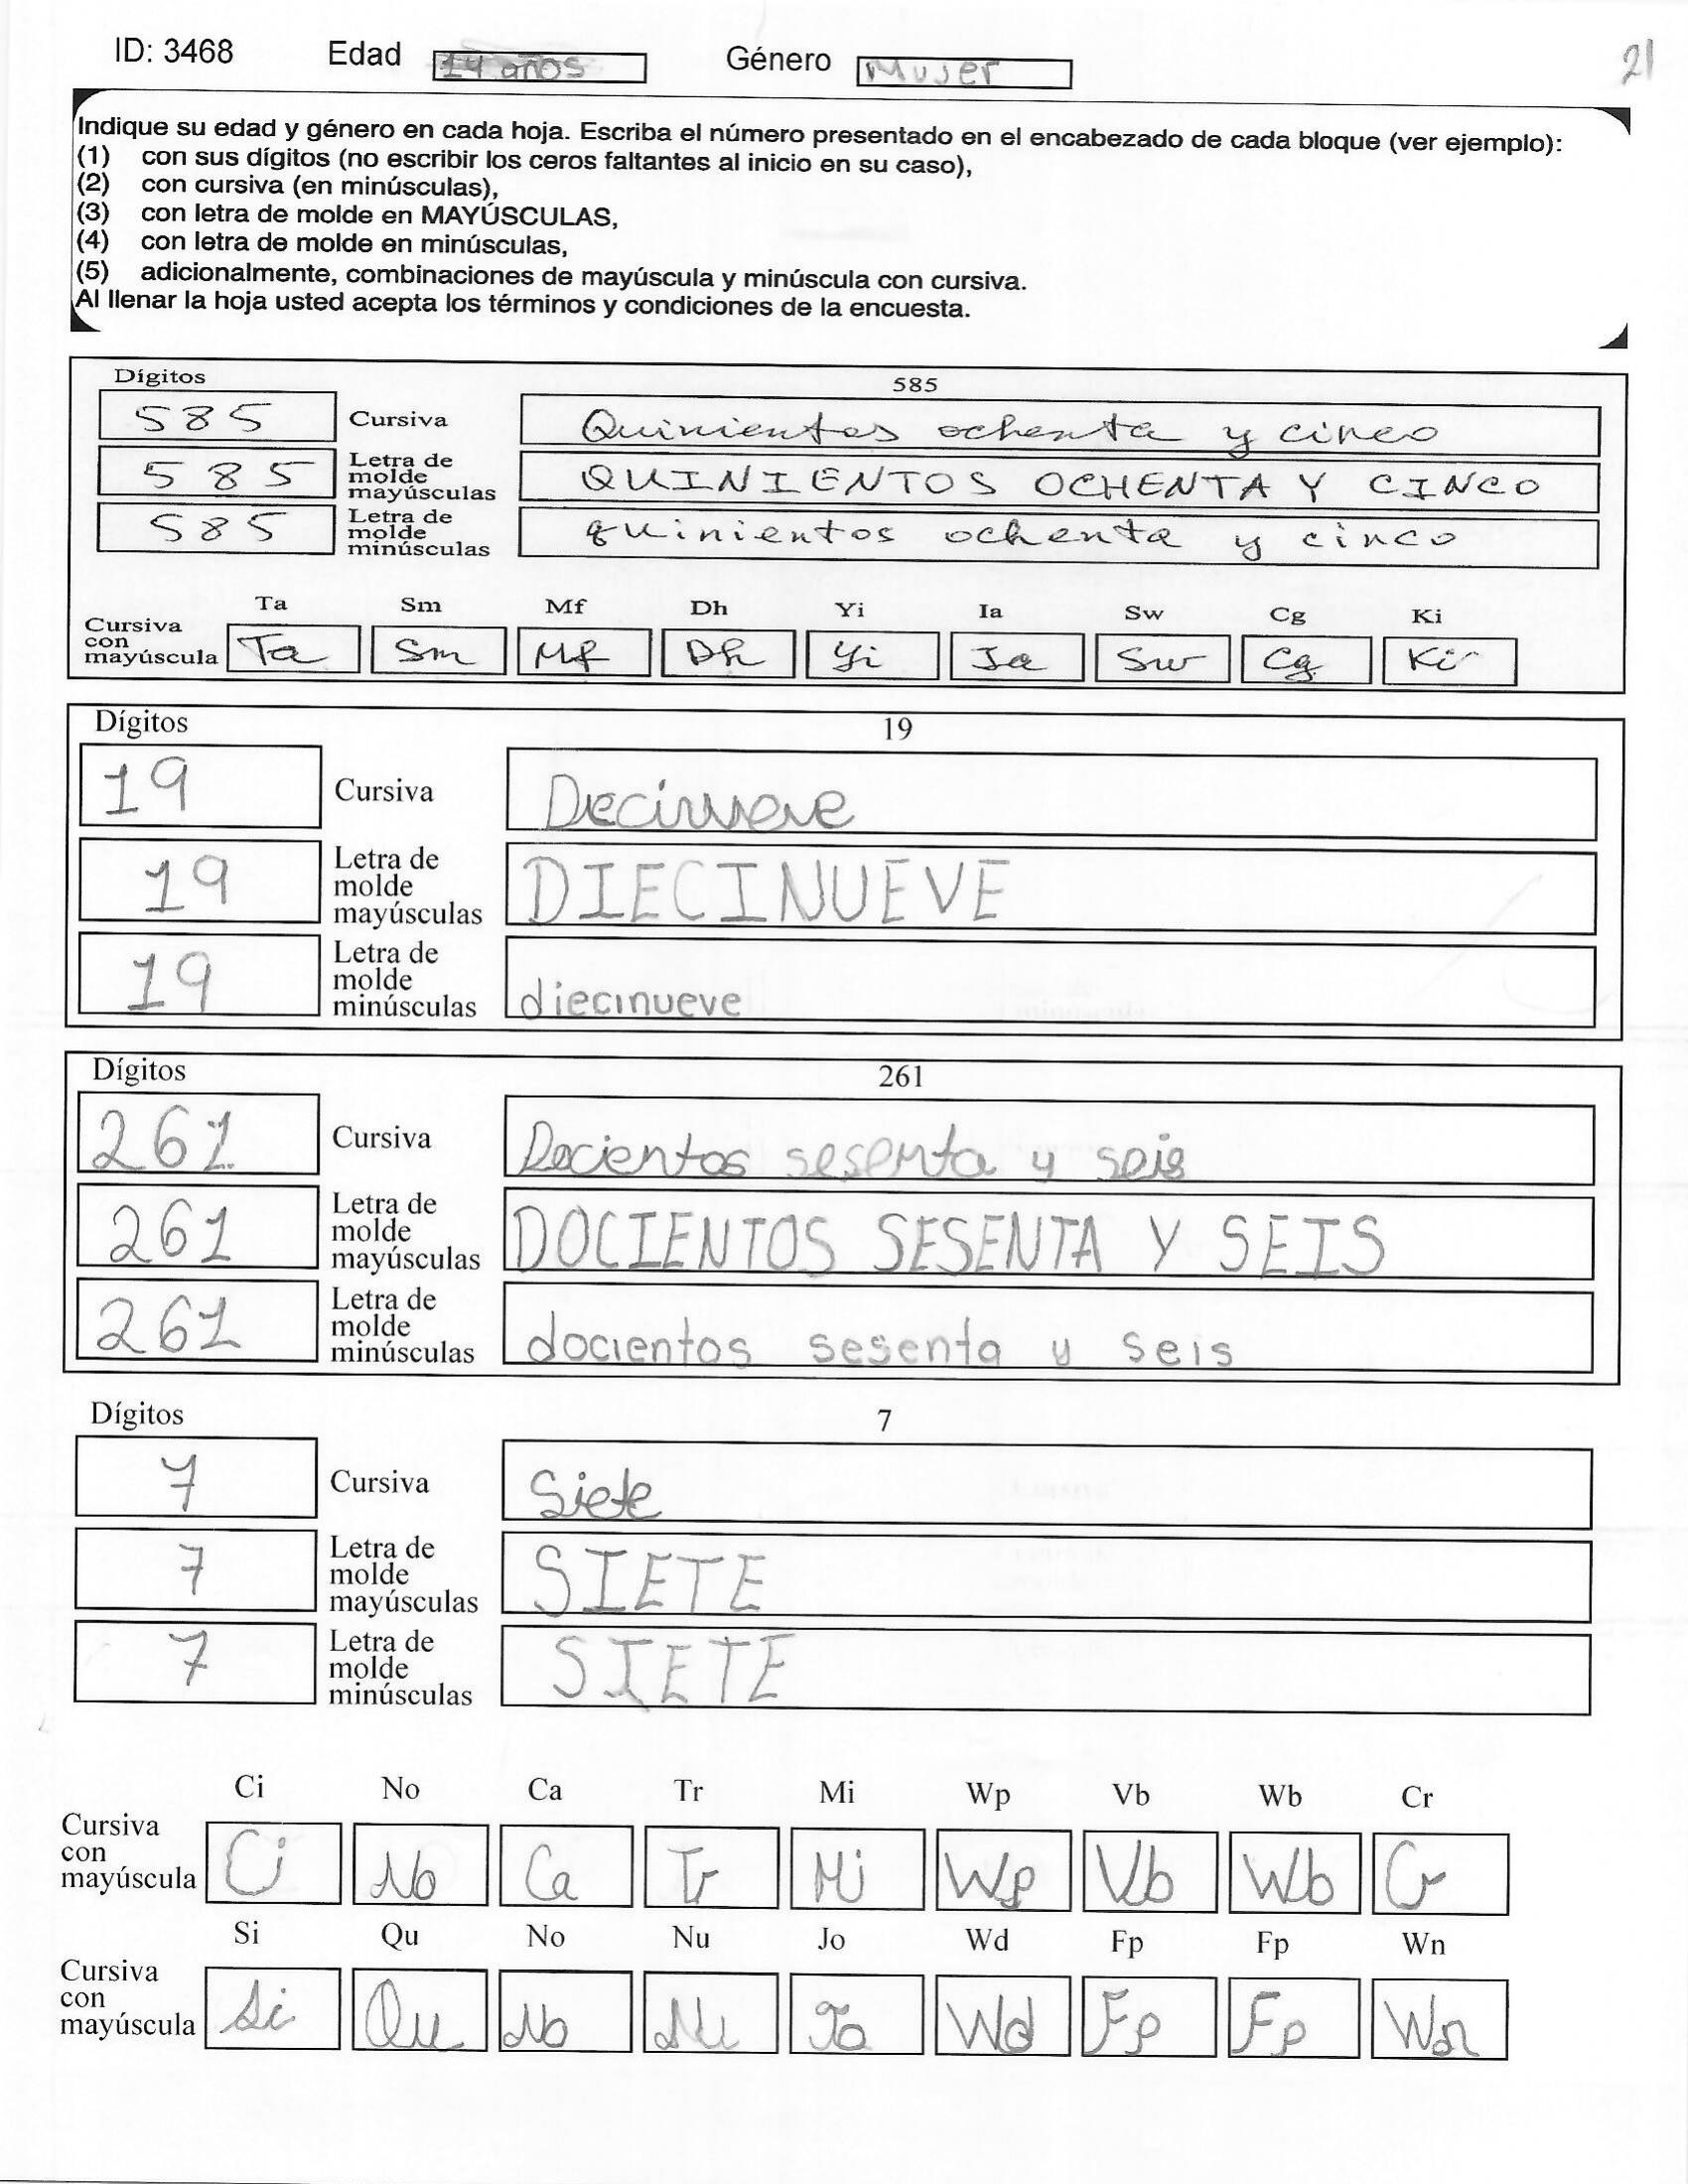 ID: 3468 Edad 14 años Género Mujer 21
Indique su edad y género en cada hoja. Escriba el número presentado en el encabezado de cada bloque (ver ejemplo):
(1) con sus dígitos (no escribir los ceros faltantes al inicio en su caso),
(2) con cursiva (en minúsculas),
(3) con letra de molde en MAYÚSCULAS,
(4) con letra de molde en minúsculas,
(5) adicionalmente, combinaciones de mayúscula y minúscula con cursiva.
Al llenar la hoja usted acepta los términos y condiciones de la encuesta.
Dígitos 585
585 Cursiva Quinientos ochenta y cinco
585 Letra de molde mayúsculas QUINIENTOS OCHENTA Y CINCO
585 Letra de molde minúsculas quinientos ochenta y cinco
Ta Sm Mf Dh Yi Ia Sw Cg Ki
Cursiva con mayúscula Ta Sm Mf Dh Yi Ia Sw Cg Ki
Dígitos 19
19 Cursiva Diecinueve
19 Letra de molde mayúsculas DIECINUEVE
19 Letra de molde minúsculas diecinueve
Dígitos 261
261 Cursiva Docientos sesenta y seis
261 Letra de molde mayúsculas DOCIENTOS SESENTA Y SEIS
261 Letra de molde minúsculas docientos sesenta y seis
Dígitos 7
7 Cursiva Siete
7 Letra de molde mayúsculas SIETE
7 Letra de molde minúsculas SIETE
Ci No Ca Tr Mi Wp Vb Wb Cr
Cursiva con mayúscula Ci No Ca Tr Mi Wp Vb Wb Cr
Si Qu No Nu Jo Wd Fp Fp Wn
Cursiva con mayúscula Si Qu No Nu Jo Wd Fp Fp Wn